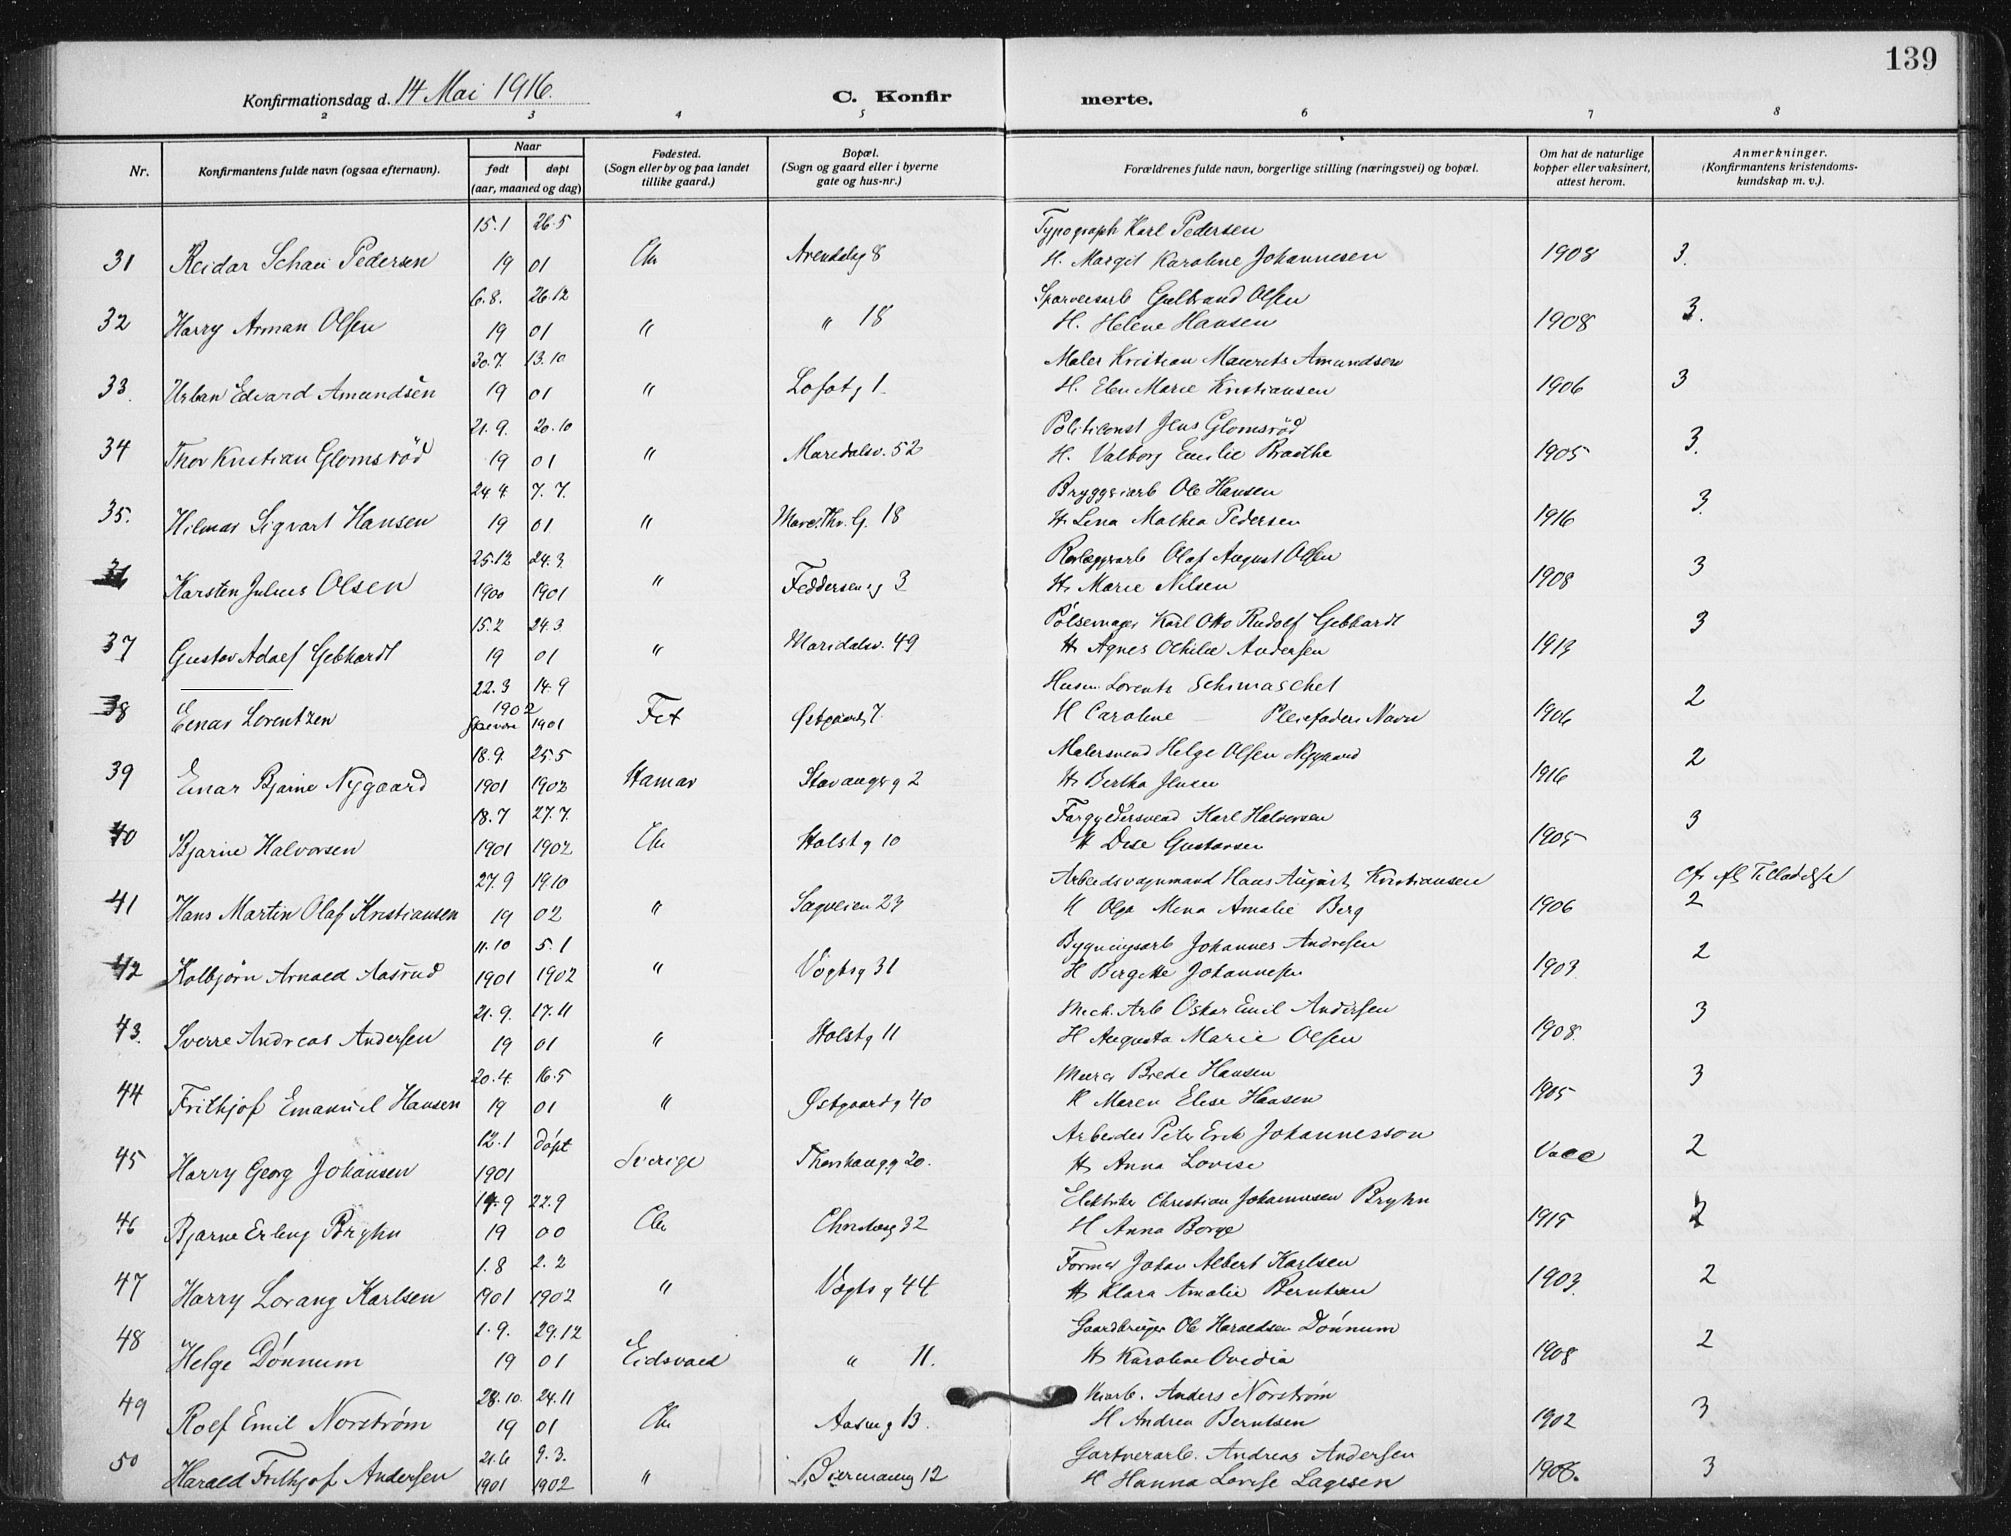 139
Konfirmationsdag d. 14 Mai 1916. C. Konfirmerte.
2 3 4 5 6 7 8
Nr. Konfirmantens fulde navn (ogsaa efternavn). Naar født døpt (aar, maaned og dag) Fødested. (Sogn eller by og paa landet tillike gaard.) Bopæl. (Sogn og gaard eller i byerne gate og hus-nr.) Forældrenes fulde navn, borgerlige stilling (næringsvei) og bopæl. Om hat de naturlige kopper eller vaksinert, attest herom. Anmerkninger. (Konfirmantens kristendoms-kundskap m. v.).
15.1 26.5 Typograph Karl Pedersen
31 Reidar Schau Pedersen 19 01 Chr Arendalsg 8 H. Margit Karoline Johannesen 1908 3.
6.8. 26.12 Sporveisarb Gulbrand Olsen
32 Harry Arman Olsen 19 01 " " 18 H. Helene Hansen 1908 3.
30.7. 13.10 Maler Kristian Maurits Amundsen
33. Urban Edvard Amundsen 19 01 " Lofotg 1. H. Elen Marie Kristiansen 1906 3
21.9. 20.10 Politiconst Jens Glomsröd
34 Thor Kristian Glomsröd 19 01 " Maridalsv. 52 H. Valborg Emilie Braathe 1905 3.
24.4. 7.7. Bryggeriarb Ole Hansen
35. Hilmar Sigvart Hansen 19 01 " 18 H. Lina Mathea Pedersen 1916 3.
25.12 24.3 Rørlæggerarb Olaf August Olsen
36 Karsten Julius Olsen 1900 1901 " Feddersens g 3 H. Marie Nilsen 1908 3
15.2 24.3. Pölsemager Karl Otto Rudolf Gebhardt
37 Gustav Adolf Gebhardt 19 01 " Maridalsv. 49 H. Agnes Othilie Andersen 1913 3
22.3 14.9 Lorentz Schimaschel
38 Einar Lorentzen 1902 1901 Fet Østgaardsg 7. H Caroline Pleiefaders Navn 1906 2
18.9. 25.5 Malersvend Helge Olsen Nygaard
39 Einar Bjarne Nygaard 1901 1902 Hamar Stavangerg 2 H. Bertha Jensen 1916 2
18.7 27.7. Forgyldersvend Karl Halvorsen
40 Bjarne Halvorsen 1901 1902 Chr Holstg 10 H Gustavsen 1905 3
27.9 19.10 Arbeidsvognmand Hans August Kristiansen Tilladelse
41 Hans Martin Olaf Kristiansen 19 02 " Sagveien 23 H Olga Mina Amalie Berg 1906 2
11.10 5.1 Bygningsarb Johannes Andresen
42 Kolbjörn Arnold Aasrud 1901 1902 " Vogtsg 31 H Bergitte Johannesen 1903. 2
21.9. 17.11 Mech. Arb Oskar Emil Andersen
43. Sverre Andreas Andersen 19 01 " Holstg 11 H Augusta Marie Olsen 1908. 3
20.4. 16.5 Murer Brede Hansen
44 Frithjof Emanuel Hansen 19 01 " Østgaardg 40 H Maren Elise Hansen 1905 3
12.1 döpt Arbeider Peter Erik Johannesson
45 Harry Georg Johansen 1901 Sverige Thorshaugg 20. H. Anna Lovise Vacc 2
14.9 22.9 Elektriker Christian Johannesen Bryhn
46 Bjarne Erling Bryhn 19 00 Chr 32 H Anna Borge 1915 2
1.8 2.2 Former Johan Albert Karlsen
47 Harry Lorang Karlsen 1901 1902 " Vogtsg 44 H. Klara Amalie Berntsen 1903. 2
1.9. 29.12 Gaardbruger Ole Haraldsen Dönnum
48 Helge Dönnum 19 01 Eidsvold " 11. H. Karoline Ovedia 1908 2
28.10. 24.11 Anders Norström
49 Rolf Emil Norström 19 01 Chr Aasensg 13. H Andrea Berntsen 1902 3
21.6 9.3. Gartnerarb. Andreas Andersen
50 Harald Frithjof Andersen 1901 1902 " Biermannsg 12 H Hanna Lovise Lagesen 1908. 3